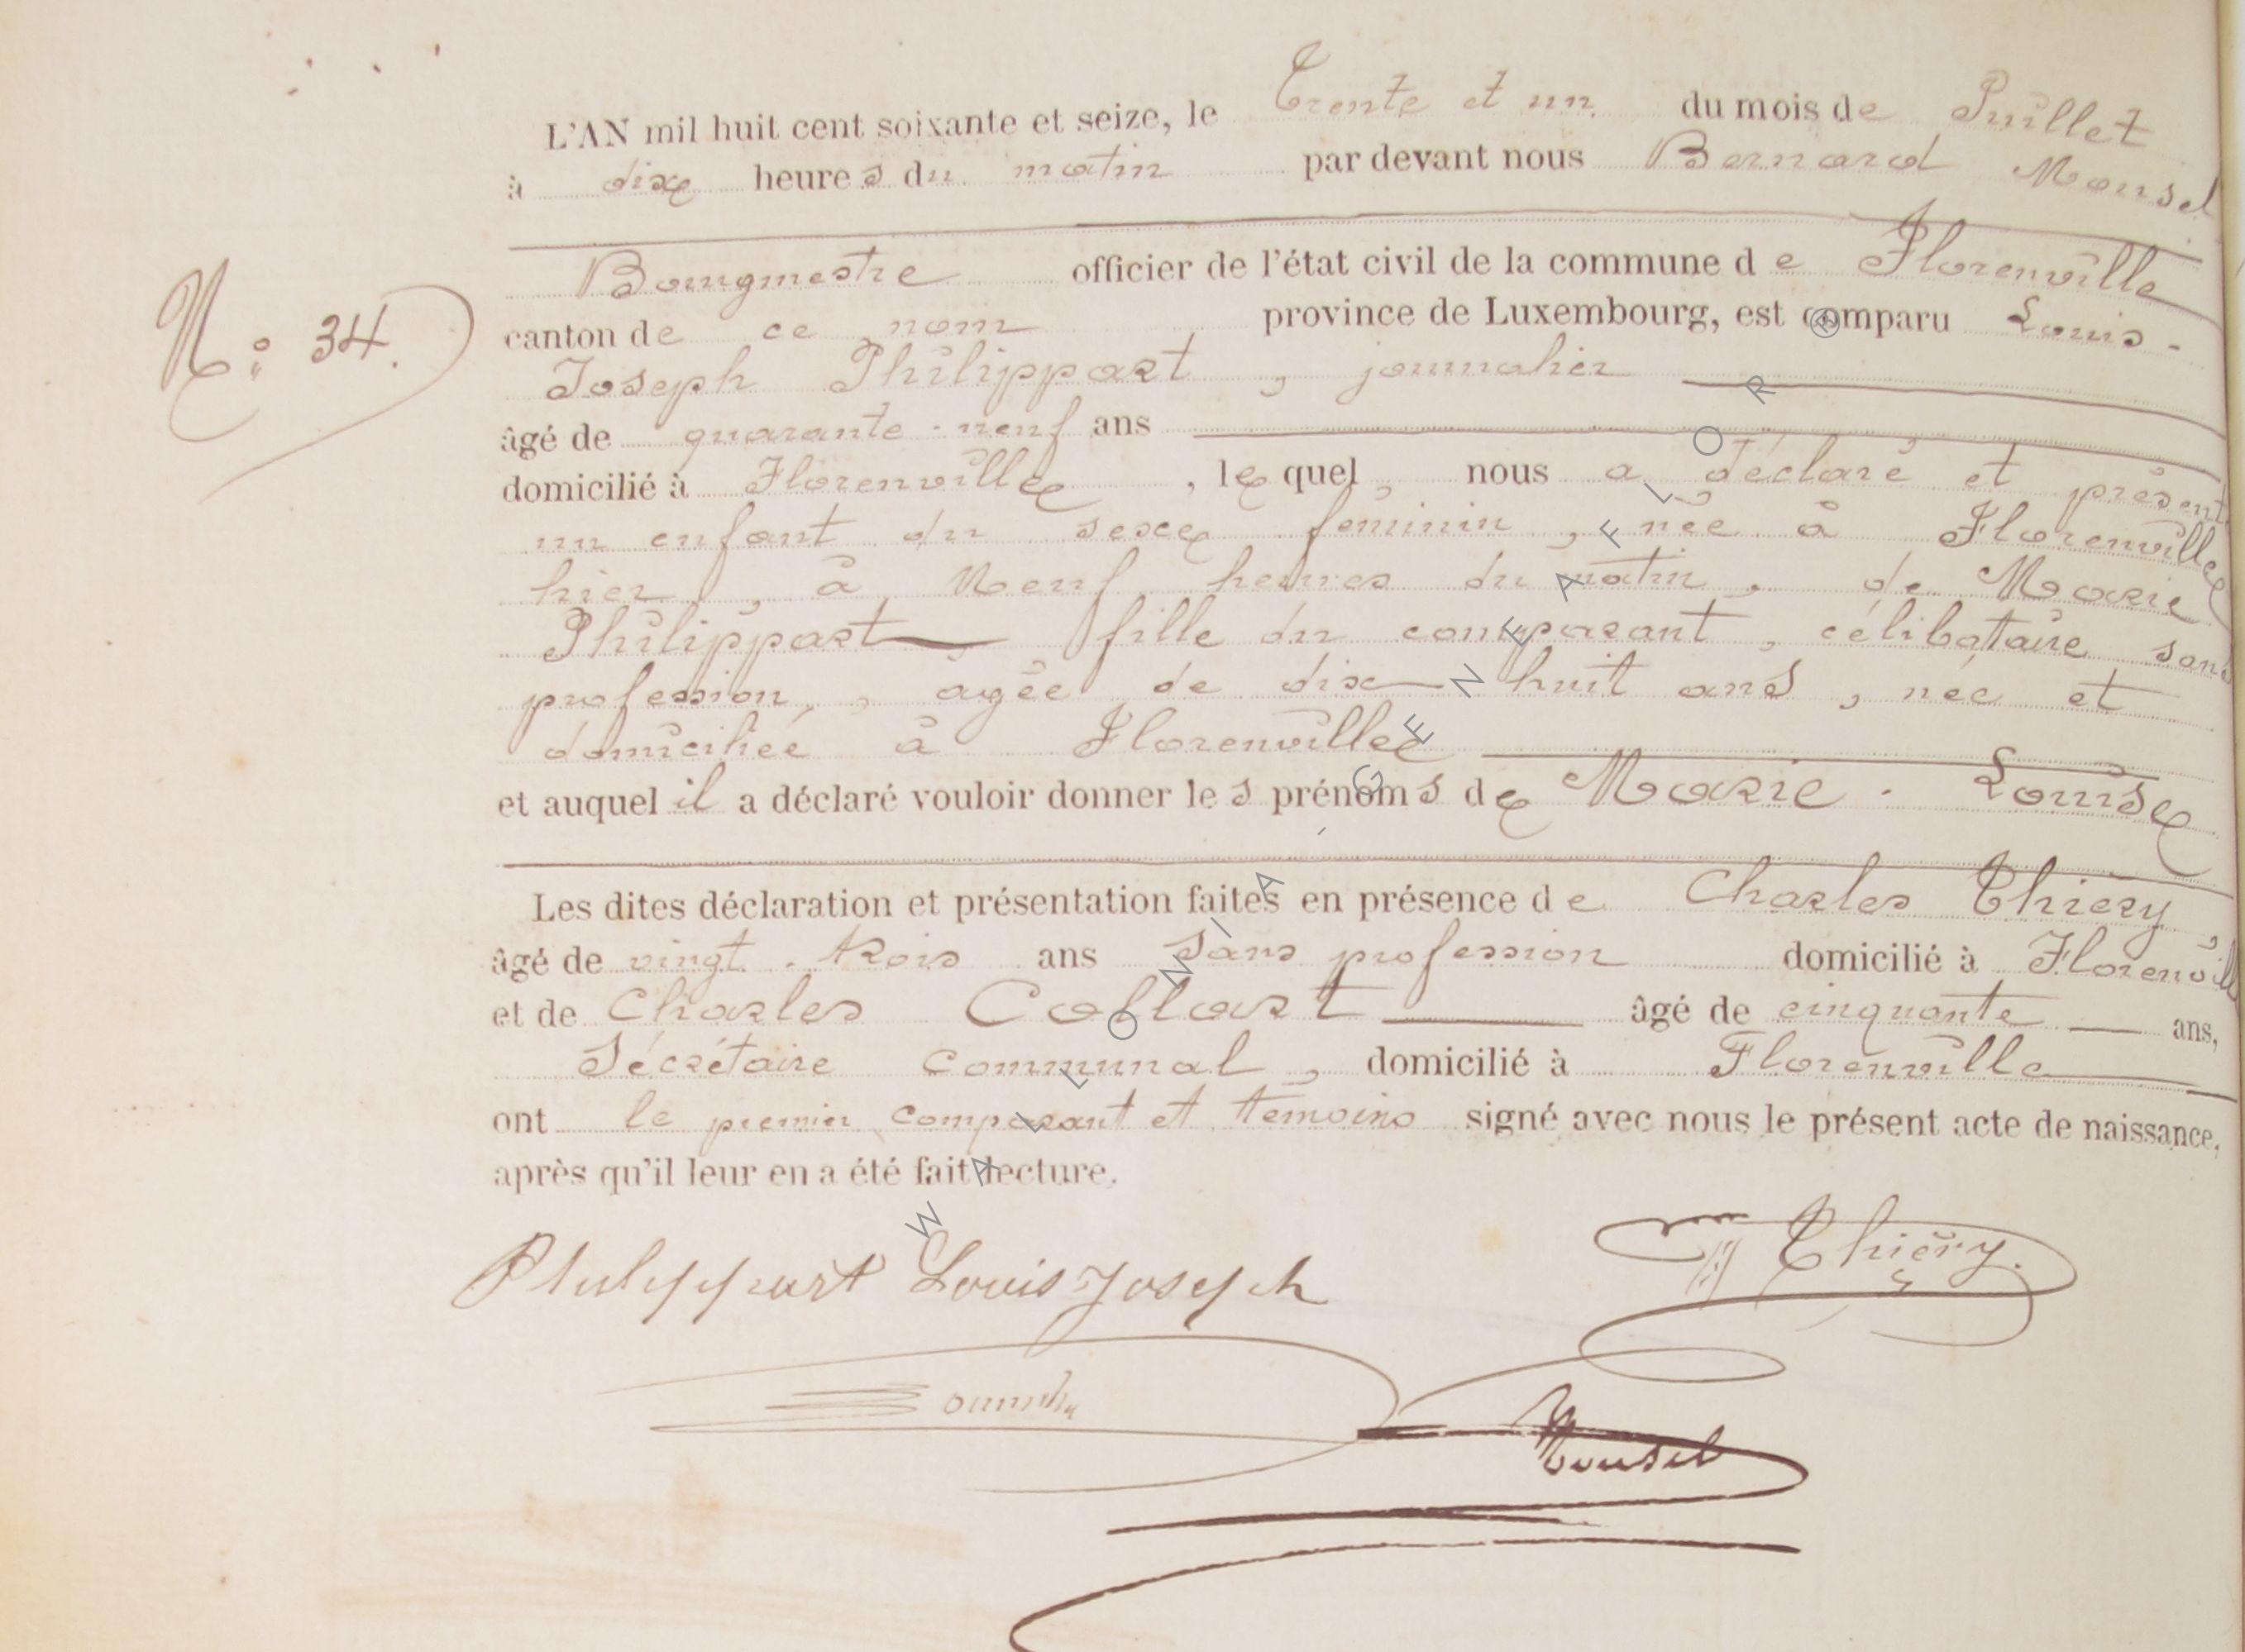 L'AN mil huit cent soixante et seize, le Trente et un du mois de Juillet
à dix heures du matin par devant nous Bernard Mousel
Bourgmestre officier de l'état civil de la commune de Florenville
N: 34. canton de ce nom province de Luxembourg, est comparu Louis-
Joseph Philippart, journalier
âgé de quarante-neuf ans
domicilié à Florenville, lequel, nous a déclaré et présent
un enfant du sexe féminin, née à Florenville
hier, à Neuf heures du matin, de Marie
Philippart fille du comparant, célibataire sans
profession, âgée de dix-huit ans, née et
domiciliée à Florenville
et auquel il a déclaré vouloir donner les prénoms de Marie-Louise
Les dites déclaration et présentation faites en présence de Charles Thiery,
âgé de vingt-trois ans sans profession domicilié à Florenvill
et de Charles Collart âgé de cinquante ans,
Sécrétaire communal, domicilié à Florenville
ont le premier comparant et témoins signé avec nous le présent acte de naissance,
après qu'il leur en a été fait lecture.
Philippart Louis Joseph
Thiéry.
Mousel
WALLONIA GENEAFLOR ®